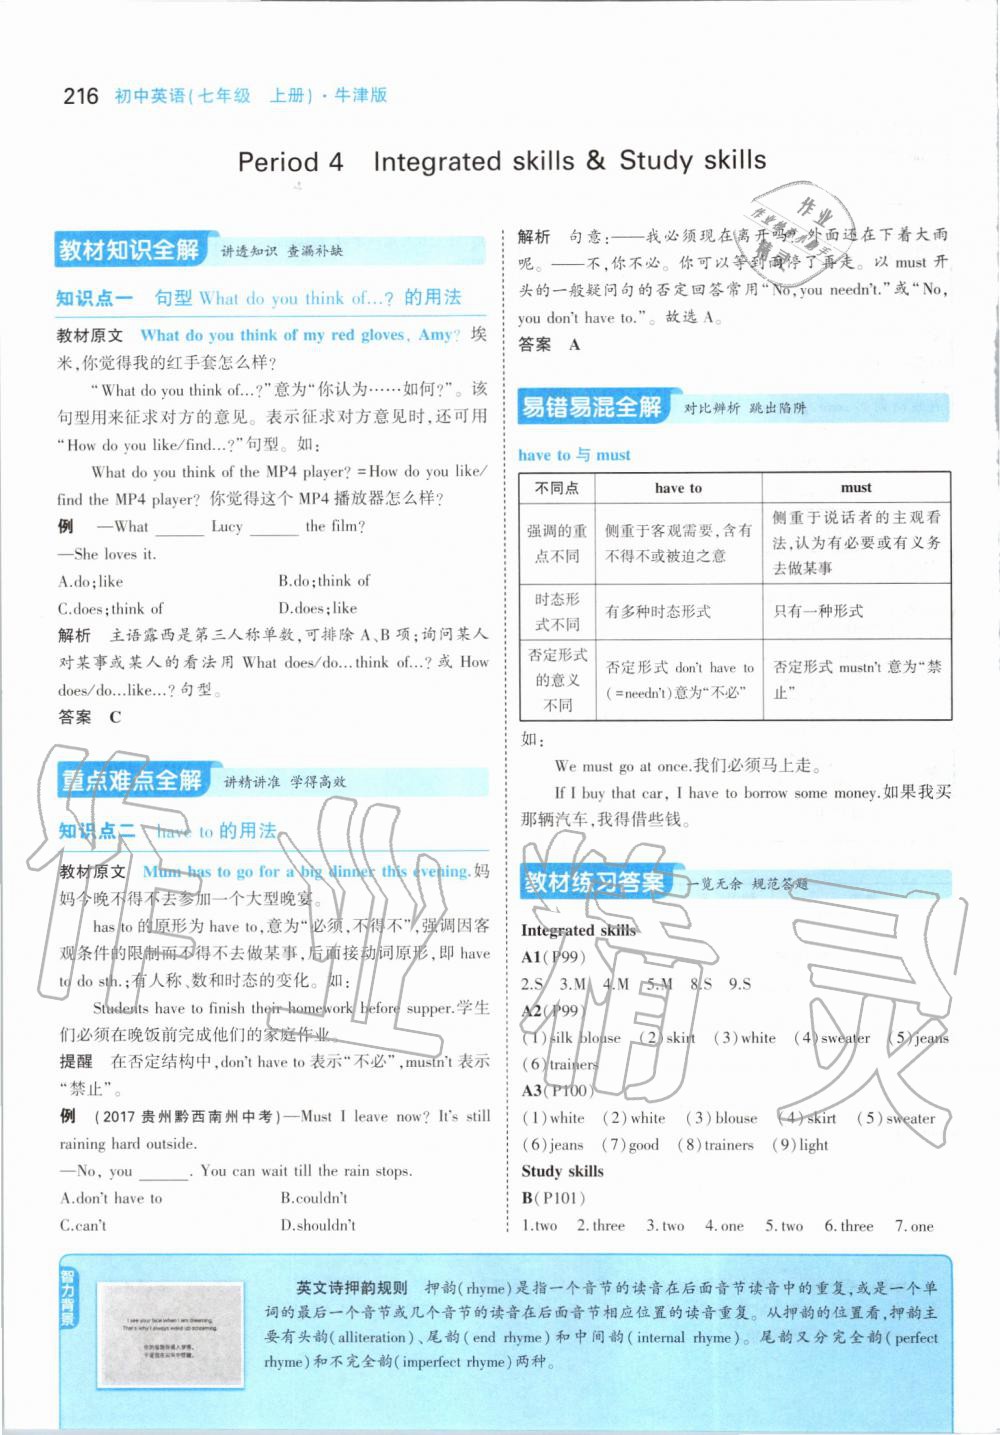 216 初中英语(七年级 上册)·牛津版
Period 4 Integrated skills & Study skills
教材知识全解 讲透知识 查漏补缺
知识点一 句型 What do you think of…? 的用法
教材原文 What do you think of my red gloves, Amy? 埃
米,你觉得我的红手套怎么样?
“What do you think of…?”意为“你认为……如何?”。该
句型用来征求对方的意见。表示征求对方意见时,还可用
“How do you like/find…?”句型。如:
What do you think of the MP4 player? =How do you like/
find the MP4 player? 你觉得这个 MP4 播放器怎么样?
例 —What ______ Lucy ______ the film?
—She loves it.
A.do;like B.do;think of
C.does;think of D.does;like
解析 主语露西是第三人称单数,可排除 A、B 项;询问某人
对某事或某人的看法用 What does/do…think of…? 或 How
does/do…like…? 句型。
答案 C
重点难点全解 讲精讲准 学得高效
知识点二 have to 的用法
教材原文 Mum has to go for a big dinner this evening.妈
妈今晚不得不去参加一个大型晚宴。
has to 的原形为 have to,意为“必须,不得不”,强调因客
观条件的限制而不得不去做某事,后面接动词原形,即 have
to do sth.;有人称、数和时态的变化。如:
Students have to finish their homework before supper.学生
们必须在晚饭前完成他们的家庭作业。
提醒 在否定结构中,don't have to 表示“不必”,mustn't 表示
“禁止”。
例 (2017 贵州黔西南州中考)—Must I leave now? It's still
raining hard outside.
—No, you ______. You can wait till the rain stops.
A.don't have to B.couldn't
C.can't D.shouldn't
解析 句意:——我必须现在离开吗? 外面还在下着大雨
呢。——不,你不必。你可以等到雨停了再走。以 must 开
头的一般疑问句的否定回答常用“No,you needn't.”或“No,
you don't have to.”。故选 A。
答案 A
易错易混全解 对比辨析 跳出陷阱
have to 与 must
不同点 have to must
强调的重点不同 侧重于客观需要,含有不得不或被迫之意 侧重于说话者的主观看法,认为有必要或有义务去做某事
时态形式不同 有多种时态形式 只有一种形式
否定形式的意义不同 否定形式 don't have to (=needn't)意为“不必” 否定形式 mustn't 意为“禁止”
如:
We must go at once.我们必须马上走。
If I buy that car, I have to borrow some money.如果我买
那辆汽车,我得借些钱。
教材练习答案 一览无余 规范答题
Integrated skills
A1(P99)
2.S 3.M 4.M 5.M 8.S 9.S
A2(P99)
(1)silk blouse (2)skirt (3)white (4)sweater (5)jeans
(6)trainers
A3(P100)
(1)white (2)white (3)blouse (4)skirt (5)sweater
(6)jeans (7)good (8)trainers (9)light
Study skills
B(P101)
1.two 2.three 3.two 4.one 5.two 6.three 7.one
智力背景
I see your face when I am dreaming.
That's why I always wake up screaming.
英文诗押韵规则 押韵(rhyme)是指一个音节的读音在后面音节读音中的重复,或是一个单
词的最后一个音节或几个音节的读音在后面音节相应位置的读音重复。从押韵的位置看,押韵主
要有头韵(alliteration)、尾韵(end rhyme)和中间韵(internal rhyme)。尾韵又分完全韵(perfect
rhyme)和不完全韵(imperfect rhyme)两种。
作业精灵